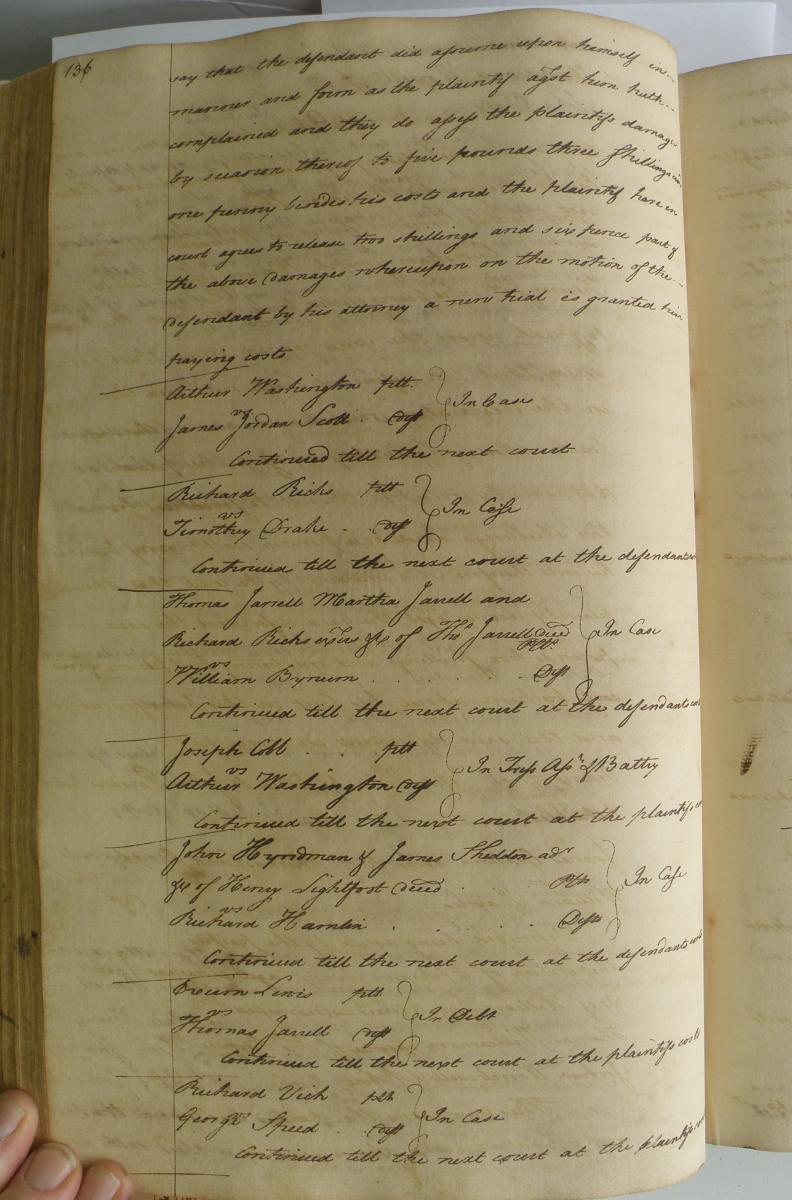 136
say that the defendant did assume upon himself in
manner and form as the plaintif agst him hath
complained and they do assess the plaintifs damages
by occasion thereof to five pounds three shillings
one penny besides his costs and the plaintif here in
court agrees to release two shillings and six pence part of
the above damages whereupon on the motion of the
defendant by his attorney a new trial is granted him
paying costs
Arthur Washington plt.
vs
James Jordan Scott . Deft
In Case
Continued till the next court
Richard Ricks pltt
vs
Timothey Drake . Deft
In Case
Continued till the next court at the defendants
Thomas Jarrell Martha Jarrell and
Richard Ricks exers &c of Thos Jarrell deced
Plts
vs
William Bynum . . . . Deft
In Case
Continued till the next court at the defendants
Joseph Cobb . . pltt
vs
Arthur Washington Deft
In Tress Asst & Battry
Continued till the next court at the plaintifs
John Hyndman & James Sheddon adr
&c of Henry Lightfoot deced Plts
vs
Richard Hamlin . . . . Deft
In Case
Continued till the next court at the defendants costs
Exum Lewis pltt
vs
Thomas Jarrell Deft
In Debt
Continued till the next court at the plaintifs costs
Richard Vick plt
vs
George Speed . Deft
In Case
Continued till the next court at the plaintifs